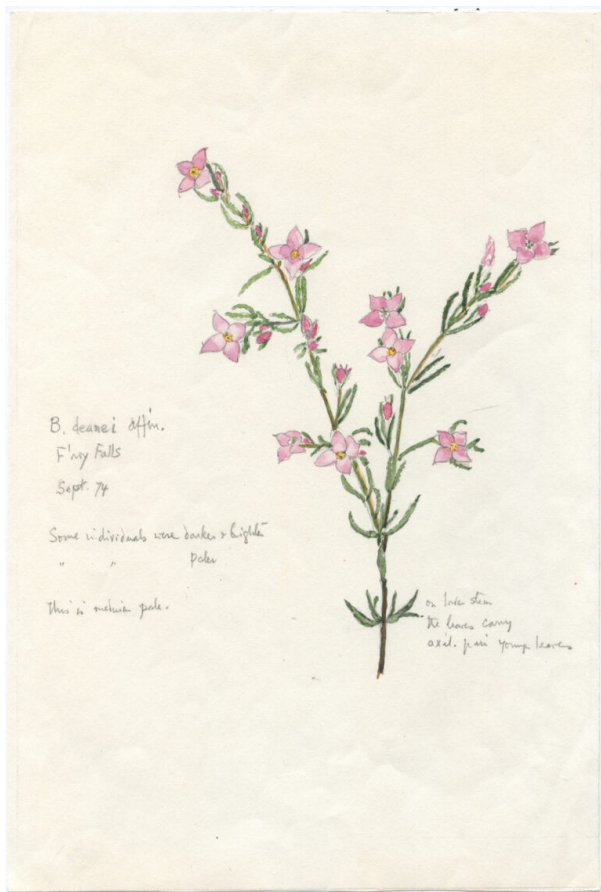 B. deanei affin.
F'roy Falls
Sept. 74
Some individuals were darker & brighter
" " paler
This is medium pale.
on lower stem
the leaves carry
axil. pair young leaves